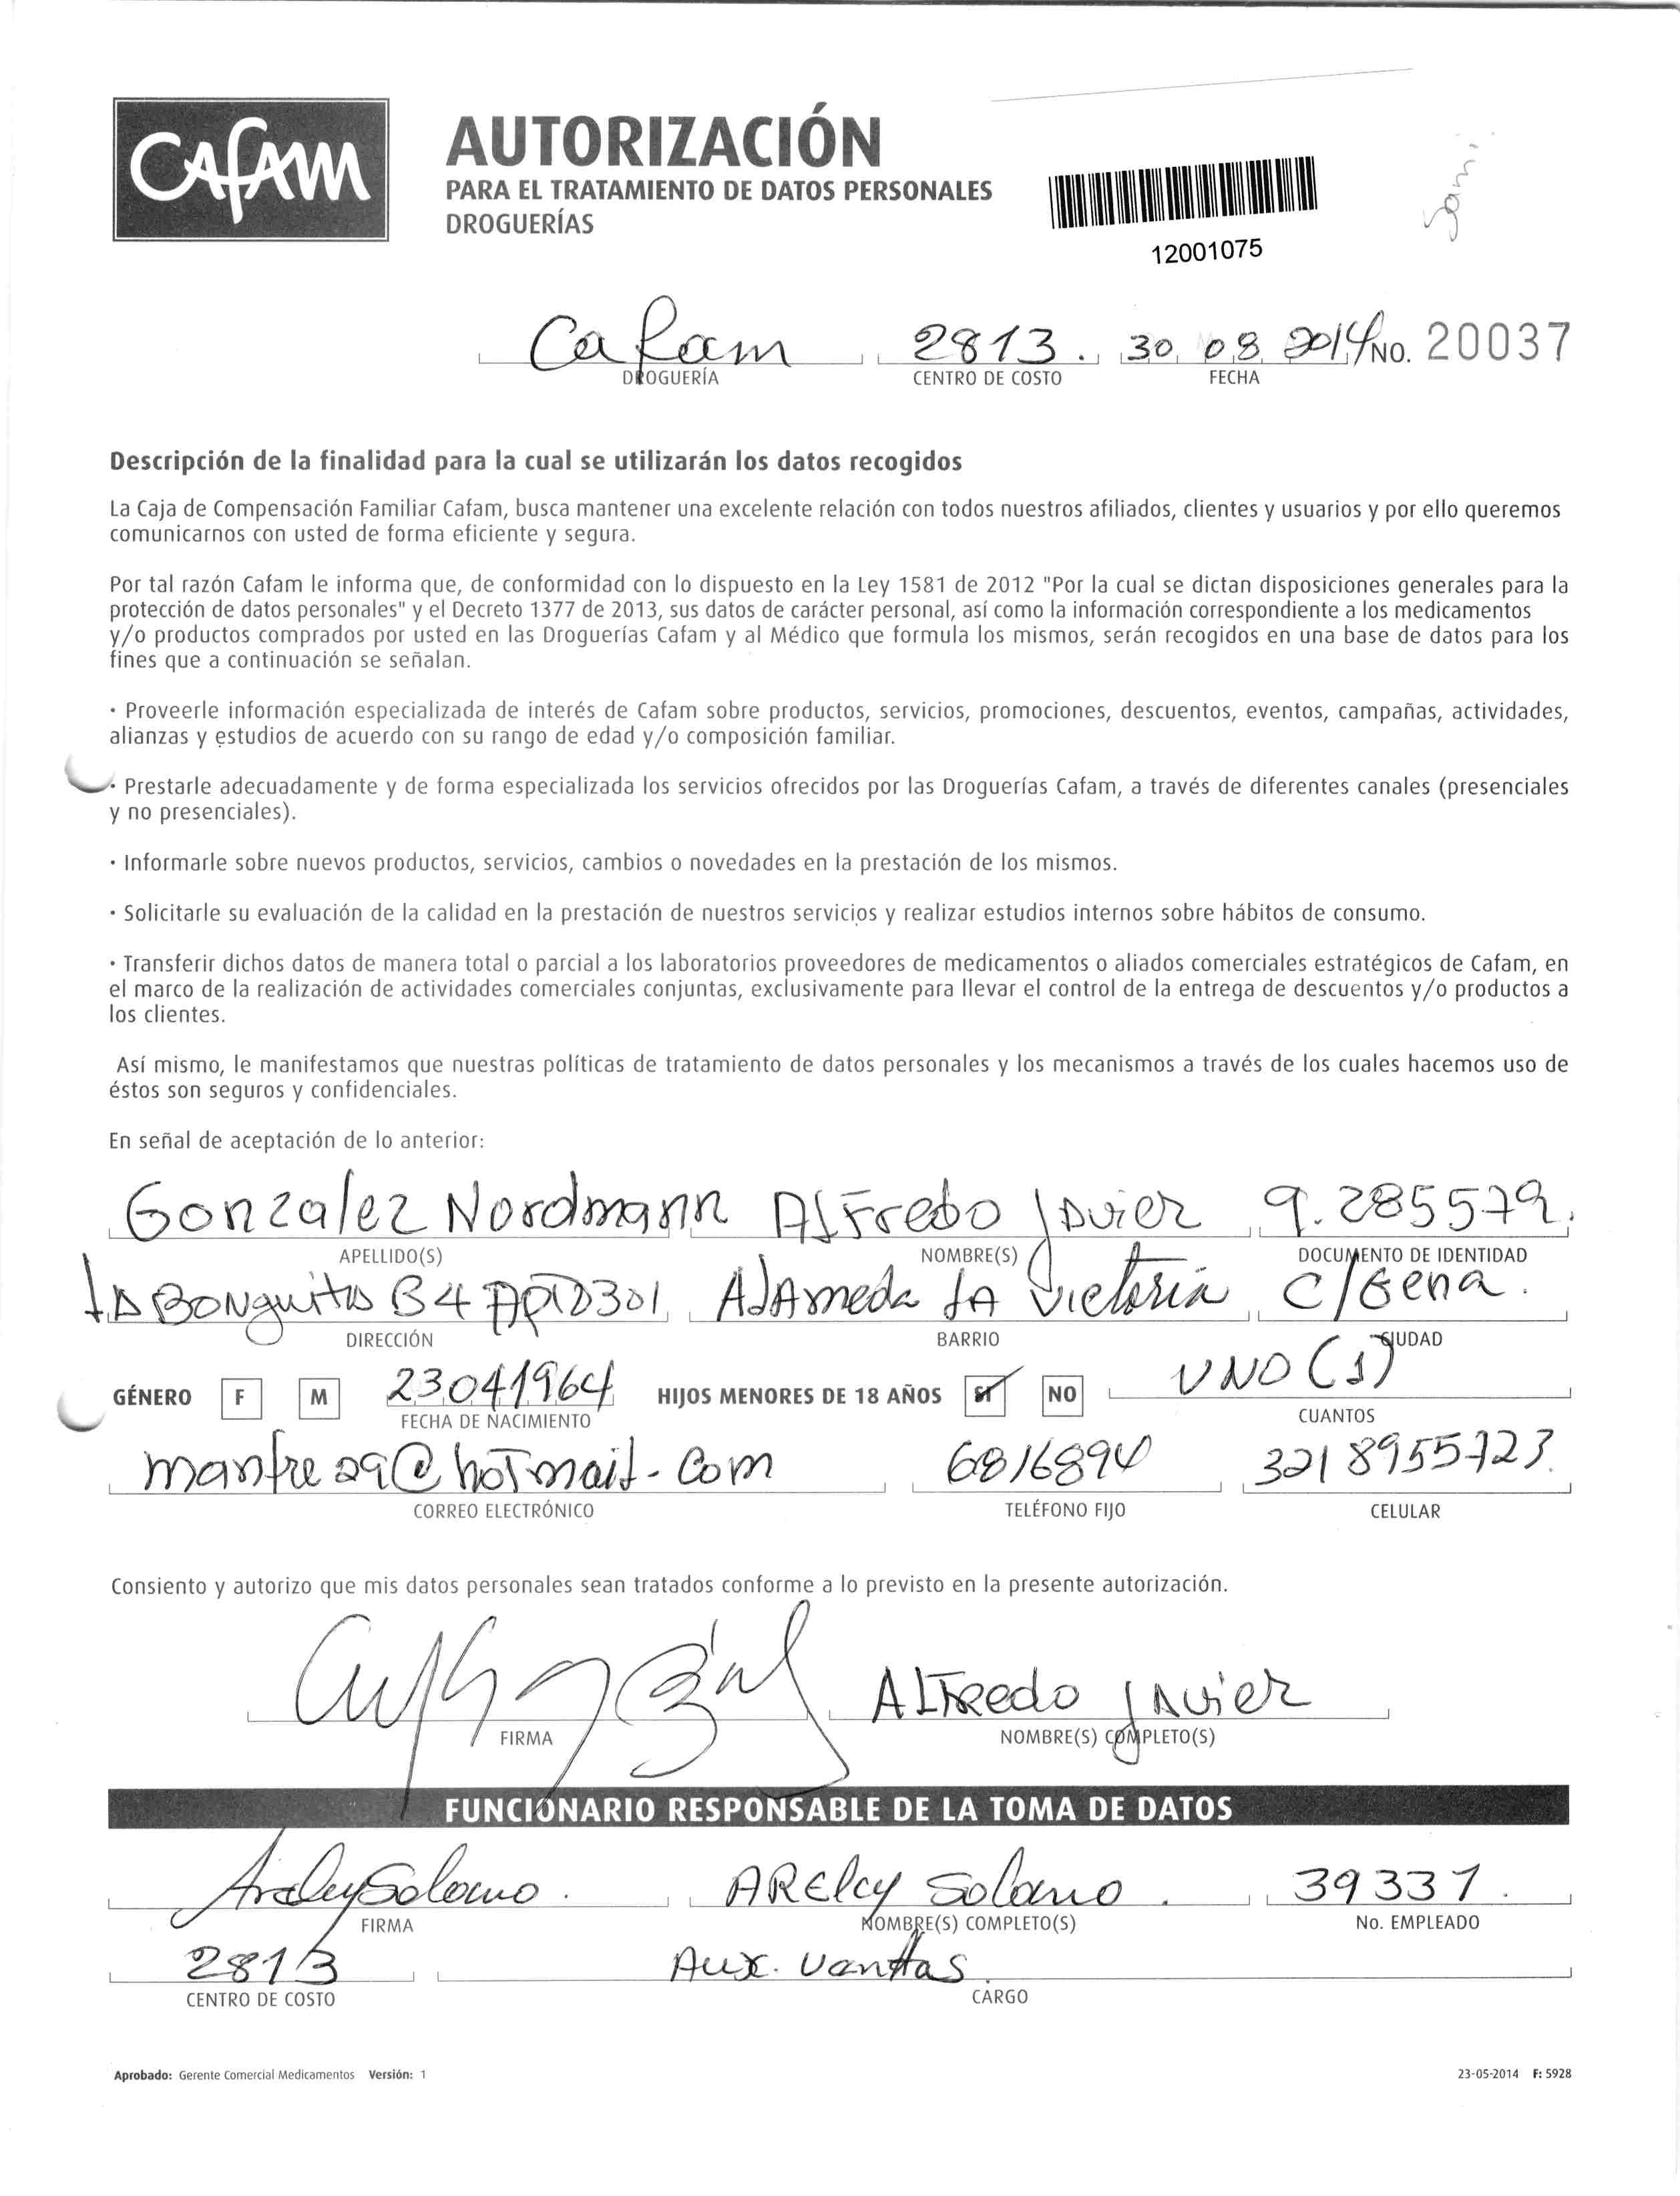 Cafam
AUTORIZACIÓN
PARA EL TRATAMIENTO DE DATOS PERSONALES
DROGUERÍAS
12001075
Cafam 2813. 30 08 2014 No. 20037
DROGUERÍA CENTRO DE COSTO FECHA
Descripción de la finalidad para la cual se utilizarán los datos recogidos
La Caja de Compensación Familiar Cafam, busca mantener una excelente relación con todos nuestros afiliados, clientes y usuarios y por ello queremos
comunicarnos con usted de forma eficiente y segura.
Por tal razón Cafam le informa que, de conformidad con lo dispuesto en la Ley 1581 de 2012 "Por la cual se dictan disposiciones generales para la
protección de datos personales" y el Decreto 1377 de 2013, sus datos de carácter personal, así como la información correspondiente a los medicamentos
y/o productos comprados por usted en las Droguerías Cafam y al Médico que formula los mismos, serán recogidos en una base de datos para los
fines que a continuación se señalan.
· Proveerle información especializada de interés de Cafam sobre productos, servicios, promociones, descuentos, eventos, campañas, actividades,
alianzas y estudios de acuerdo con su rango de edad y/o composición familiar.
· Prestarle adecuadamente y de forma especializada los servicios ofrecidos por las Droguerías Cafam, a través de diferentes canales (presenciales
y no presenciales).
· Informarle sobre nuevos productos, servicios, cambios o novedades en la prestación de los mismos.
· Solicitarle su evaluación de la calidad en la prestación de nuestros servicios y realizar estudios internos sobre hábitos de consumo.
· Transferir dichos datos de manera total o parcial a los laboratorios proveedores de medicamentos o aliados comerciales estratégicos de Cafam, en
el marco de la realización de actividades comerciales conjuntas, exclusivamente para llevar el control de la entrega de descuentos y/o productos a
los clientes.
Así mismo, le manifestamos que nuestras políticas de tratamiento de datos personales y los mecanismos a través de los cuales hacemos uso de
éstos son seguros y confidenciales.
En señal de aceptación de lo anterior:
Gonzalez Nordmann Alfredo Javier 9.285579.
APELLIDO(S) NOMBRE(S) DOCUMENTO DE IDENTIDAD
LA BONguita B4 APTO301 Alameda LA Victoria C/Gena.
DIRECCIÓN BARRIO CIUDAD
GÉNERO F M 23041964 HIJOS MENORES DE 18 AÑOS SI NO UNO (1)
FECHA DE NACIMIENTO CUANTOS
manfre29@hotmail.com 6816894 3218955723.
CORREO ELECTRÓNICO TELÉFONO FIJO CELULAR
Consiento y autorizo que mis datos personales sean tratados conforme a lo previsto en la presente autorización.
Alfredo Javier
FIRMA NOMBRE(S) COMPLETO(S)
FUNCIONARIO RESPONSABLE DE LA TOMA DE DATOS
Arelcy Solano. ARElcy Solano. 39331.
FIRMA NOMBRE(S) COMPLETO(S) No. EMPLEADO
2813 Aux. Venttas.
CENTRO DE COSTO CARGO
Aprobado: Gerente Comercial Medicamentos Versión: 1 23-05-2014 F: 5928